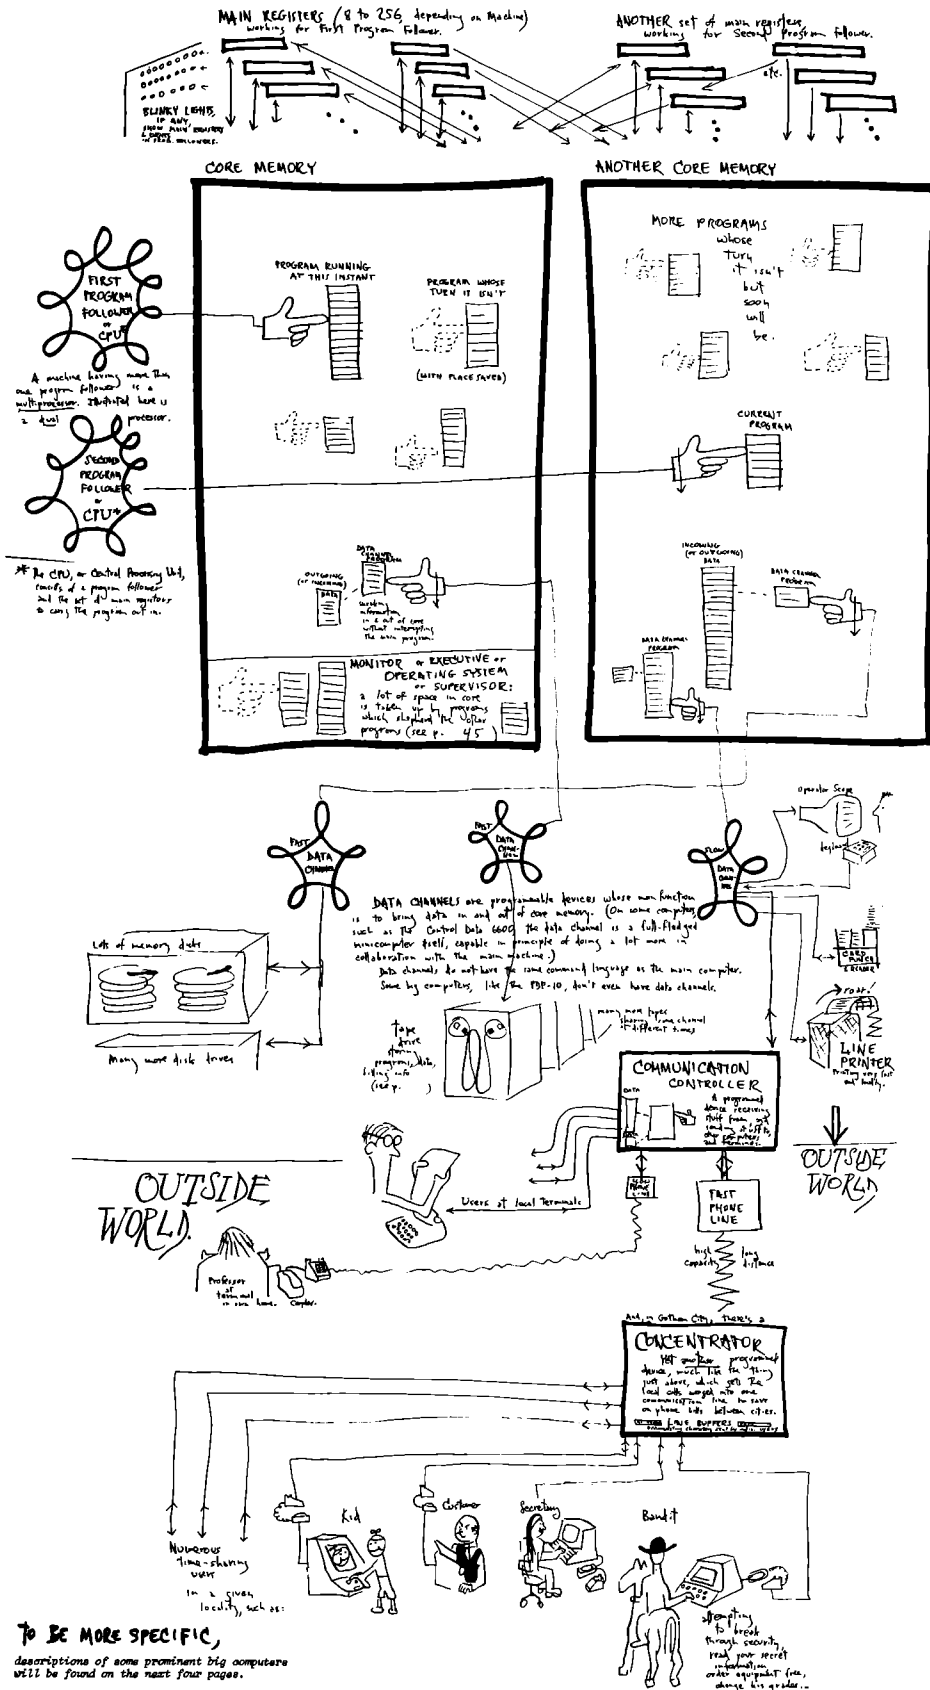 MAIN REGISTERS (8 to 256, depending on Machine)
working for First Program Follower.
ANOTHER set of main registers,
working for Second Program follower.
etc.
BLINKY LIGHTS,
IF ANY,
SHOW MAIN REGISTERS
CORE MEMORY
ANOTHER CORE MEMORY
FIRST
PROGRAM
FOLLOWER
or
CPU*
A machine having more than
one program follower is a
multiprocessor. Illustrated here is
a dual processor.
SECOND
PROGRAM
FOLLOWER
or
CPU*
* The CPU, or Central Processing Unit,
consists of a program follower
and the set of main registers
to carry the program out in.
PROGRAM RUNNING
AT THIS INSTANT
PROGRAM WHOSE
TURN IT ISN'T
(WITH PLACE SAVED)
MORE PROGRAMS
whose
turn
it isn't
but
soon
will
be.
CURRENT
PROGRAM
DATA
CHANNEL
PROGRAM
OUTGOING
(or INCOMING)
DATA
sending
information
in & out of core
without interrupting
the main program.
INCOMING
(or OUTGOING)
DATA
DATA CHANNEL
PROGRAM
DATA CHANNEL
PROGRAM
MONITOR or EXECUTIVE or
OPERATING SYSTEM
or SUPERVISOR:
a lot of space in core
is taken up by programs
which shepherd the other
programs (see p. 45)
FAST
DATA
CHANNEL
FAST
DATA
CHAN-
NEL
SLOW
DATA
CHAN-
NEL
Operator Scope
DATA CHANNELS are programmable devices whose main function
is to bring data in and out of core memory. (On some computers,
such as the Control Data 6600, the data channel is a full-fledged
minicomputer itself, capable in principle of doing a lot more in
collaboration with the main machine.)
Data channels do not have the same command language as the main computer.
Some big computers, like the PDP-10, don't even have data channels.
CARD
PUNCH
& READER
roar!
LINE
PRINTER
Printing very fast
and loudly.
Lots of memory disks
Many more disk drives
tape
drive
storing
programs, data,
billing info
(see p. )
many more tapes
sharing same channel
at different times
COMMUNICATION
CONTROLLER
DATA
A programmed
device receiving
stuff from and
sending stuff to
other computers
and terminals.
OUTSIDE
WORLD.
OUTSIDE
WORLD
Users at local Terminals
SLOW
PHONE
LINE
FAST
PHONE
LINE
high
capacity
long
distance
Professor
at
terminal
in own home.
Coupler.
And, in Gotham City, there's a
CONCENTRATOR
Yet another programmed
device, much like the thing
just above, which gets the
local calls merged into one
communication line to save
on phone bills between cities.
LINE BUFFERS
Kid
Customer
Secretary
Bandit
Numerous
time-sharing
users
in a given
locality, such as:
attempting
to break
through security,
read your secret
information
order equipment free,
change his grades...
TO BE MORE SPECIFIC,
descriptions of some prominent big computers
will be found on the next four pages.